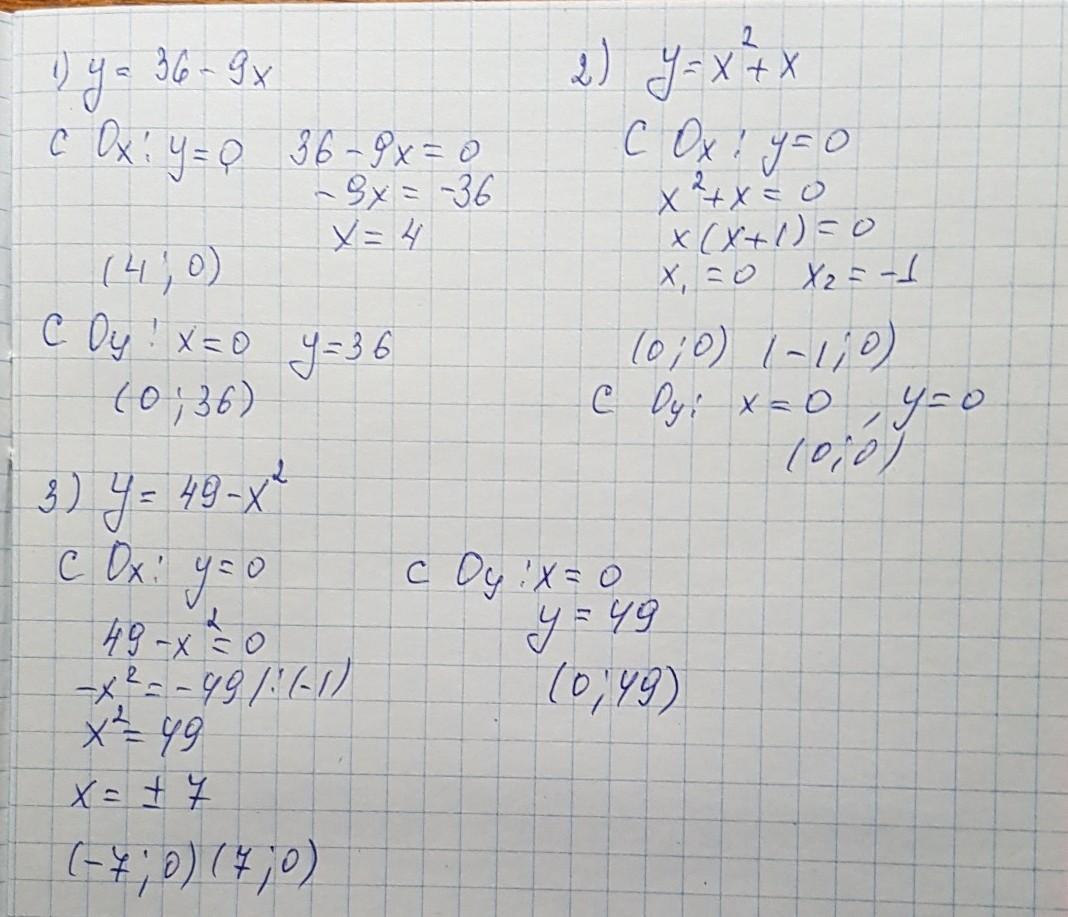 1) y = 36 - 9x
С Ox: y=0 36 - 9x = 0
- 9x = -36
x = 4
(4; 0)
С Oy: x=0 y=36
(0; 36)
2) y = x² + x
С Ox: y=0
x² + x = 0
x(x+1) = 0
x₁ = 0 x₂ = -1
(0;0) (-1;0)
С Oy: x=0, y=0
(0;0)
3) y = 49 - x²
С Ox: y=0
49 - x² = 0
-x² = -49 /:(-1)
x² = 49
x = ± 7
(-7; 0) (7; 0)
С Oy: x=0
y = 49
(0; 49)